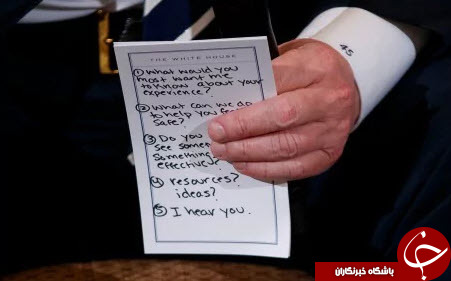 THE WHITE HOUSE
1 What would you
most want me
to know about your
experience?
2 What can we do
to help you
safe?
3 Do you
see
effective?
4 resources?
ideas?
5 I hear you.
45
باشگاه خبرنگاران